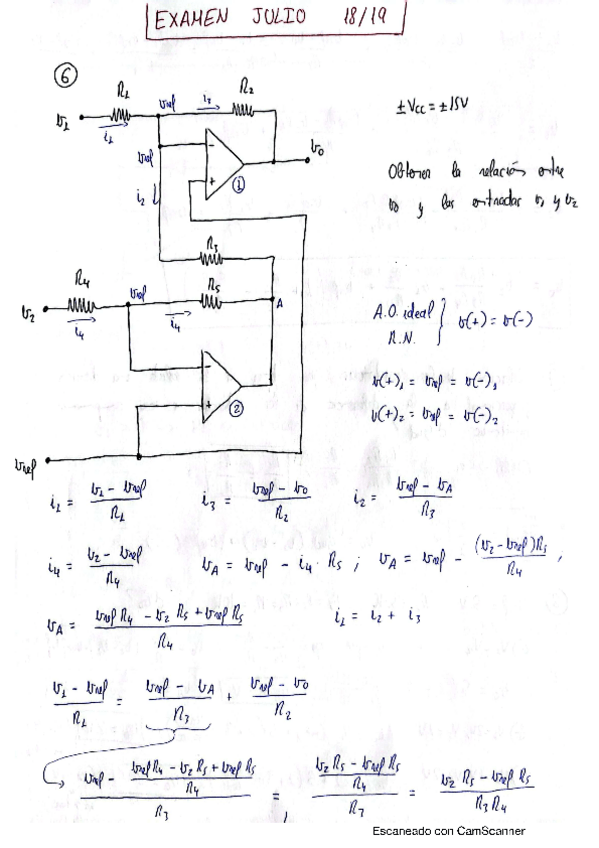 EXAMEN JULIO 18/19
6
R1 vref i3 R2
v1 i1
vref - v0
i2 + 1
R3
R4 vref R5
v2 i4 i4 A
- 2 +
vref
±Vcc = ±15V
Obtener la relación entre
v0 y las entradas v1 y v2
A.O. ideal } v(+) = v(-)
R.N.
v(+)1 = vref = v(-)1
v(+)2 = vref = v(-)2
i1 = (v1 - vref)/R1 i3 = (vref - v0)/R2 i2 = (vref - vA)/R3
i4 = (v2 - vref)/R4 vA = vref - i4 · R5 ; vA = vref - (v2 - vref)R5/R4 ,
vA = (vref R4 - v2 R5 + vref R5)/R4 i1 = i2 + i3
(v1 - vref)/R1 = (vref - vA)/R3 + (vref - v0)/R2
(vref - (vref R4 - v2 R5 + vref R5)/R4)/R3 = , ((v2 R5 - vref R5)/R4)/R3 = (v2 R5 - vref R5)/(R3 R4)
Escaneado con CamScanner